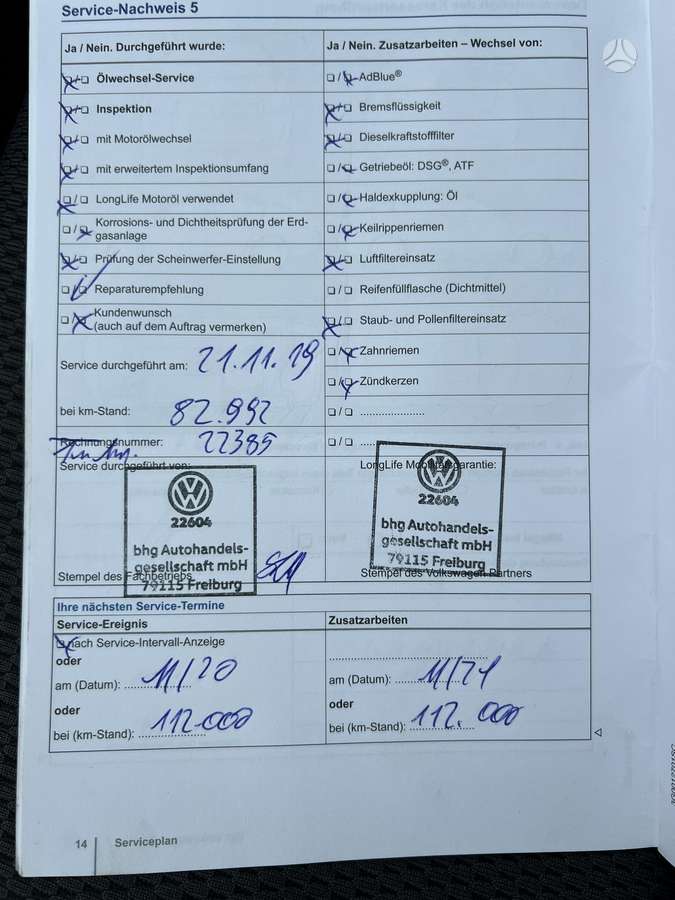 Service-Nachweis 5
Ja / Nein. Durchgeführt wurde:
☒/☐ Ölwechsel-Service
☒/☐ Inspektion
☒/☐ mit Motorölwechsel
☒/☐ mit erweitertem Inspektionsumfang
☒/☐ LongLife Motoröl verwendet
☐/☒ Korrosions- und Dichtheitsprüfung der Erd-
gasanlage
☒/☐ Prüfung der Scheinwerfer-Einstellung
☐/☑ Reparaturempfehlung
☐/☒ Kundenwunsch
(auch auf dem Auftrag vermerken)
Service durchgeführt am: 21.11.19
bei km-Stand: 82.992
Rechnungsnummer: 22385
Service durchgeführt von:
22604
bhg Autohandels-
gesellschaft mbH
79115 Freiburg
Stempel des Fachbetriebs
Ja / Nein. Zusatzarbeiten – Wechsel von:
☐/☒ AdBlue®
☒/☐ Bremsflüssigkeit
☒/☐ Dieselkraftstofffilter
☐/☒ Getriebeöl: DSG®, ATF
☐/☒ Haldexkupplung: Öl
☐/☒ Keilrippenriemen
☒/☐ Luftfiltereinsatz
☐/☐ Reifenfüllflasche (Dichtmittel)
☒/☐ Staub- und Pollenfiltereinsatz
☐/☒ Zahnriemen
☐/☒ Zündkerzen
☐/☐ .....................
☐/☐ ....
LongLife Mobilitätsgarantie:
22604
bhg Autohandels-
gesellschaft mbH
79115 Freiburg
Stempel des Volkswagen Partners
Ihre nächsten Service-Termine
Service-Ereignis
☒ nach Service-Intervall-Anzeige
oder
am (Datum): 11/20
oder
bei (km-Stand): 112.000
Zusatzarbeiten
am (Datum): 11/21
oder
bei (km-Stand): 112.000
14 | Serviceplan